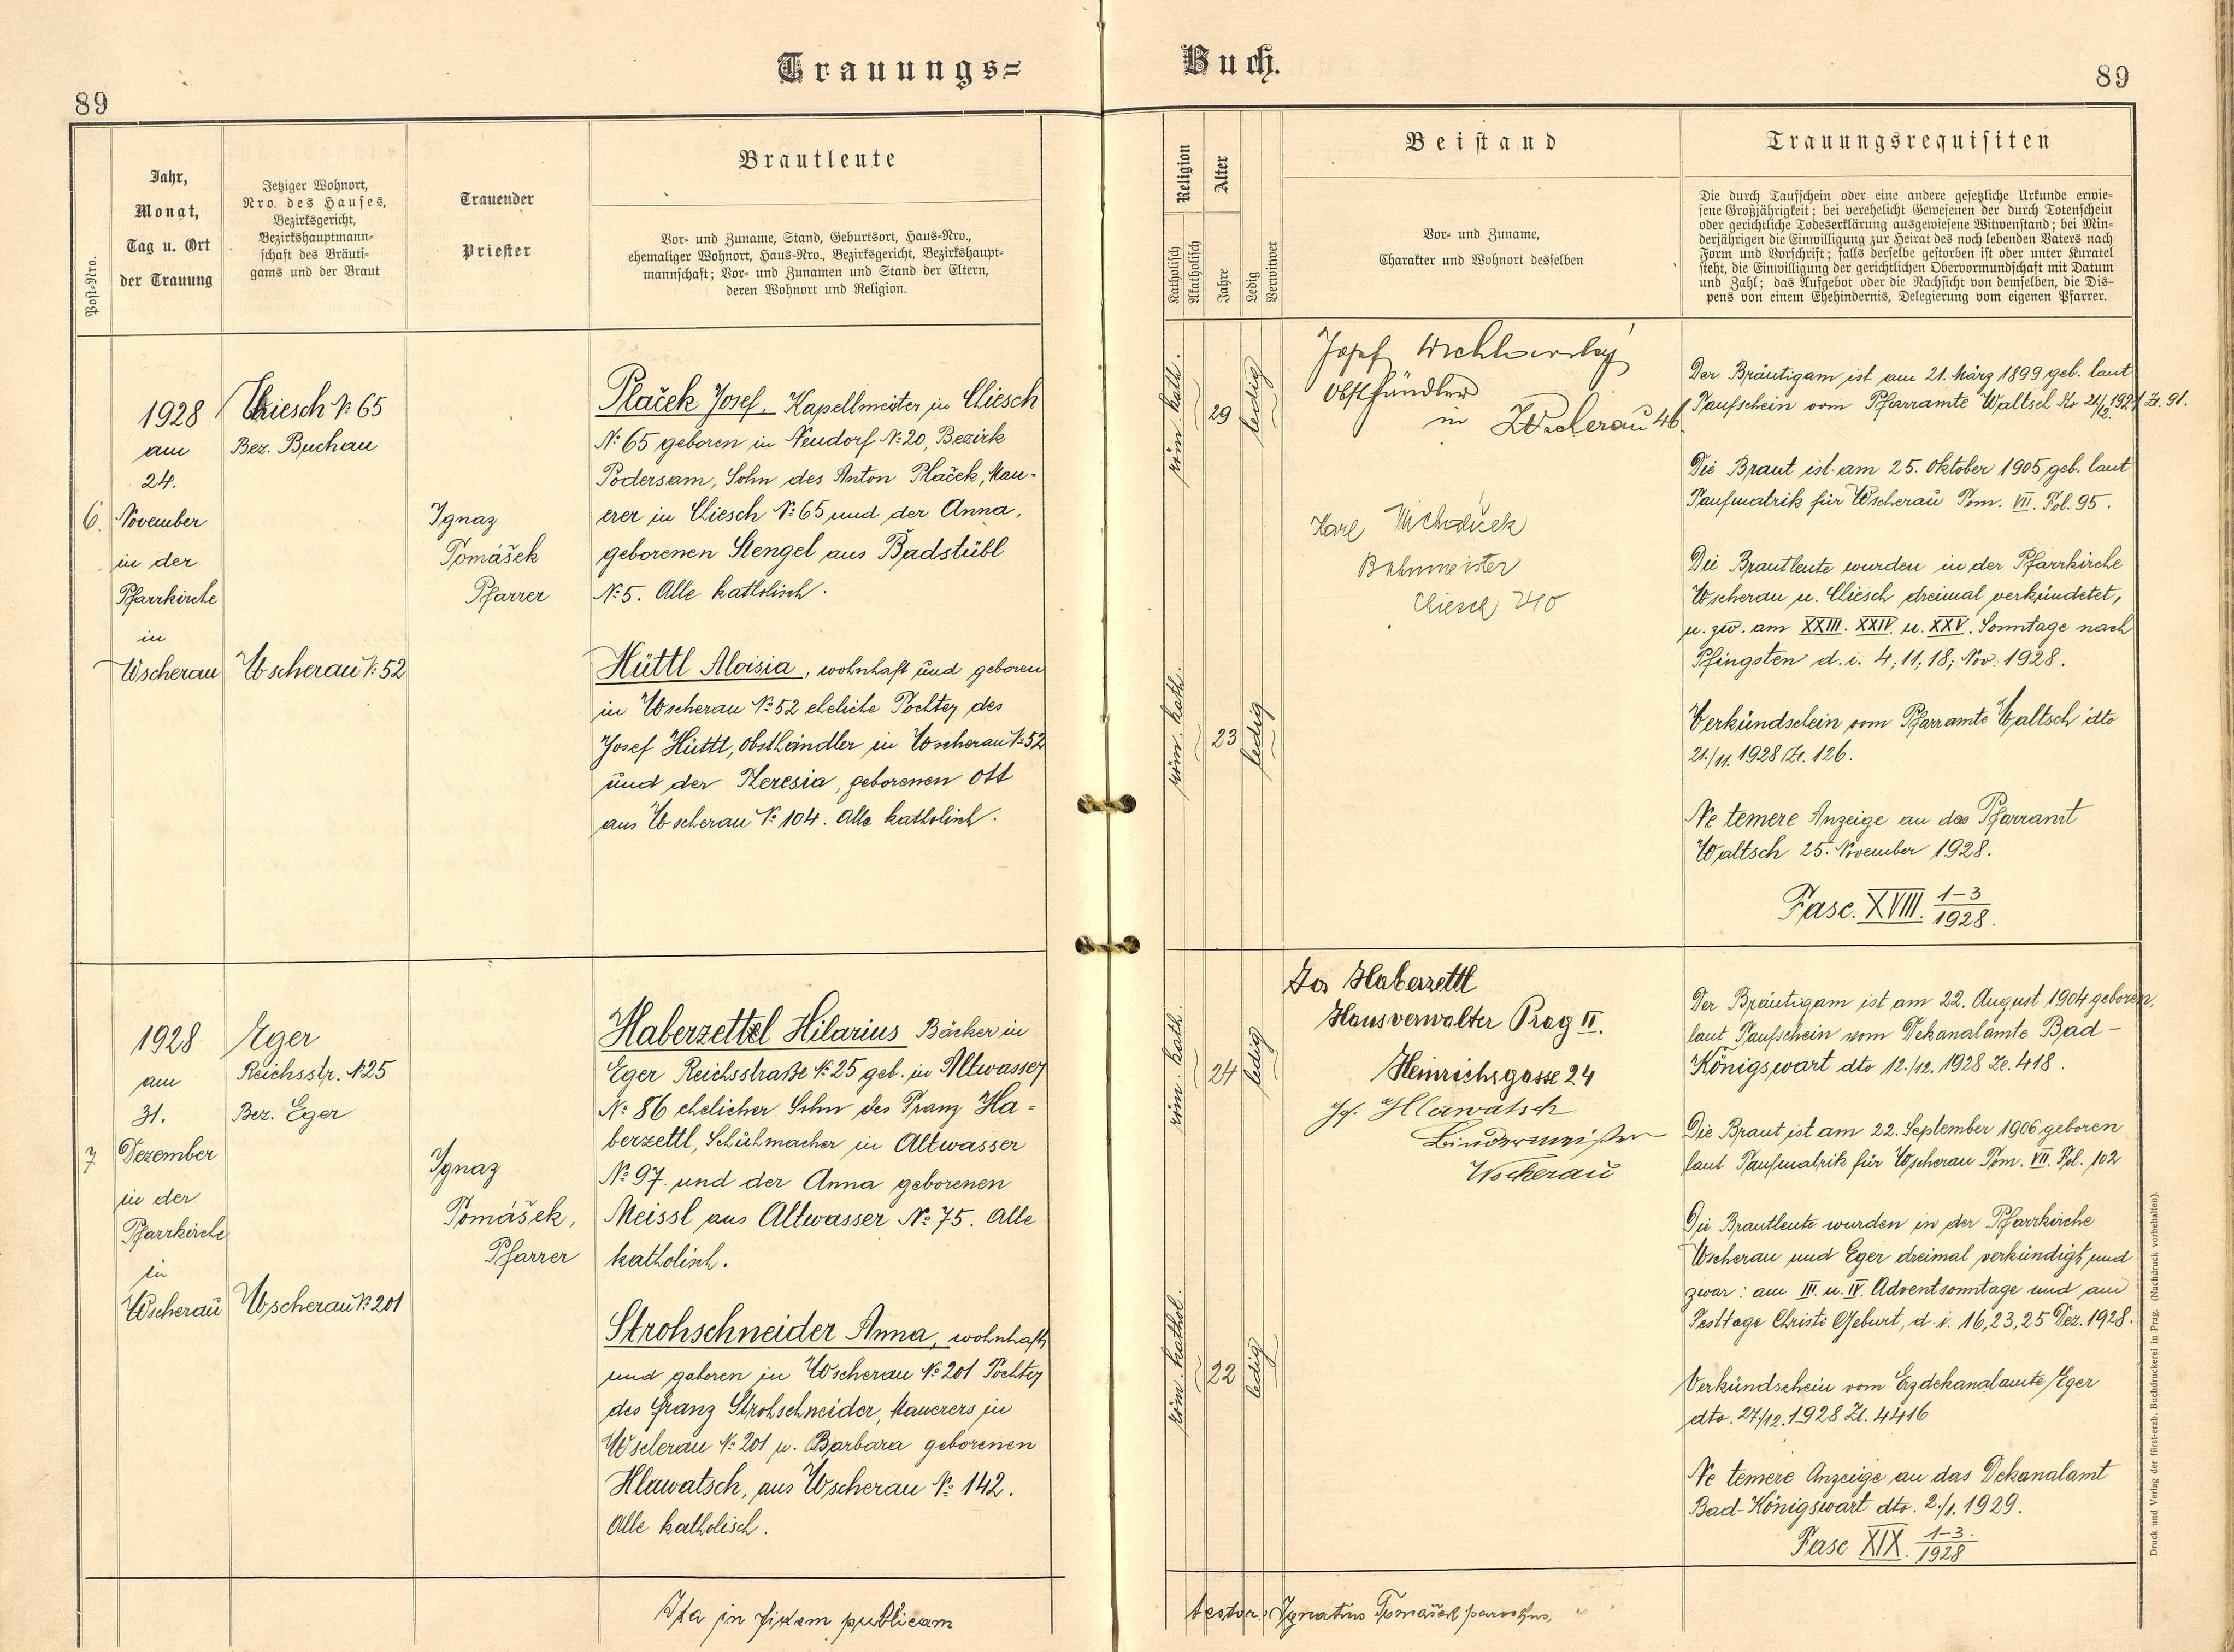 Trauungs=
Buch.
89
89
Post=Nro.
Jahr,
Monat,
Tag u. Ort
der Trauung
Jetziger Wohnort,
Nro. des Hauses,
Bezirksgericht,
Bezirkshauptmann=
schaft des Bräuti=
gams und der Braut
Trauender
Priester
Brautleute
Vor= und Zuname, Stand, Geburtsort, Haus=Nro.,
ehemaliger Wohnort, Haus=Nro., Bezirksgericht, Bezirkshaupt=
mannschaft; Vor= und Zunamen und Stand der Eltern,
deren Wohnort und Religion.
Religion
Katholisch
Akatholisch
Alter
Jahre
Ledig
Verwitwet
Beistand
Vor= und Zuname,
Charakter und Wohnort desselben
Trauungsrequisiten
Die durch Taufschein oder eine andere gesetzliche Urkunde erwie=
sene Großjährigkeit; bei verehelicht Gewesenen der durch Totenschein
oder gerichtliche Todeserklärung ausgewiesene Witwenstand; bei Min=
derjährigen die Einwilligung zur Heirat des noch lebenden Vaters nach
Form und Vorschrift; falls derselbe gestorben ist oder unter Kuratel
steht, die Einwilligung der gerichtlichen Obervormundschaft mit Datum
und Zahl; das Aufgebot oder die Nachsicht von demselben, die Dis=
pens von einem Ehehindernis, Delegierung vom eigenen Pfarrer.
6.
1928
am
24.
November
in der
Pfarrkirche
in
Wscherau
Chiesch No 65
Bez. Buchau
Wscherau No 52
Ignaz
Tomášek
Pfarrer
Plaček Josef, Kapellmeister in Chiesch
No 65 geboren in Neudorf No 20, Bezirk
Podersam, Sohn des Anton Plaček, Mau=
erer in Chiesch No 65 und der Anna,
geborenen Stengel aus Badstübl
No 5. Alle katholisch.
Hüttl Aloisia, wohnhaft und geboren
in Wscherau No 52 eheliche Tochter des
Josef Hüttl, Obsthändler in Wscherau No 52
und der Theresia, geborenen Ott
aus Wscherau No 104. Alle katholisch.
röm. kath.
29
ledig
röm. kath.
23
ledig
Josef
Obsthändler
in Wscherau 46.
Karl
Bahnmeister
Chiesch 240
Der Bräutigam ist am 21. März 1899 geb. laut
Taufschein vom Pfarramte Waltsch dto 21/12. Zl. 91.
Die Braut ist am 25. Oktober 1905 geb. laut
Taufmatrik für Wscherau Tom. VII. Fol. 95.
Die Brautleute wurden in der Pfarrkirche
Wscherau u. Chiesch dreimal verkündetet,
u. zw. am XXIII. XXIV. u. XXV. Sonntage nach
Pfingsten d. i. 4; 11; 18; Nov. 1928.
Verkündschein vom Pfarramte Waltsch dto
21./11. 1928 Zl. 126.
Ne temere Anzeige an das Pfarramt
Waltsch 25. November 1928.
Fasc. XVIII. 1-3/1928.
7
1928
am
31.
Dezember
in der
Pfarrkirche
in
Wscherau
Eger
Reichsstr. No 25
Bez. Eger
Wscherau No 201
Ignaz
Tomášek,
Pfarrer
Haberzettel Hilarius Bäcker in
Eger Reichsstraße No 25 geb. in Altwasser
No 86 ehelicher Sohn des Franz Ha=
berzettl, Schuhmacher in Altwasser
No 97. und der Anna geborenen
Meissl aus Altwasser No 75. Alle
katholisch.
Strohschneider Anna, wohnhaft
und geboren in Wscherau No 201 Tochter
des Franz Strohschneider, Mauerers in
Wscherau No 201 u. Barbara geborenen
Hlawatsch, aus Wscherau No 142.
Alle katholisch.
röm. kath.
24
ledig
röm. kathol.
22
ledig
Jos Haberzettl
Hausverwalter Prag II.
Heinrichsgasse 24
Jos. Hlawatsch
Bindermeister
Wscherau
Der Bräutigam ist am 22. August 1904 geboren,
laut Taufschein vom Dekanalamte Bad-
Königswart dto 12./12. 1928 Zl. 418.
Die Braut ist am 22. September 1906 geboren
laut Taufmatrik für Wscherau Tom. VII. Fol. 102
Die Brautleute wurden in der Pfarrkirche
Wscherau und Eger dreimal verkündigt, und
zwar: am III. u. IV. Adventsonntage und am
Festtage Christi Geburt, d. i. 16, 23, 25 Dez. 1928.
Verkündschein vom Erzdekanalamte Eger
dto. 27./12. 1928 Zl. 4416
Ne temere Anzeige an das Dekanalamt
Bad-Königswart dto. 2./1. 1929.
Fasc XIX. 1-3./1928
Ita in fidem publicam
testor: Ignatius Tomašek parochus.
Druck und Verlag der fürst-erzb. Buchdruckerei in Prag. (Nachdruck vorbehalten).